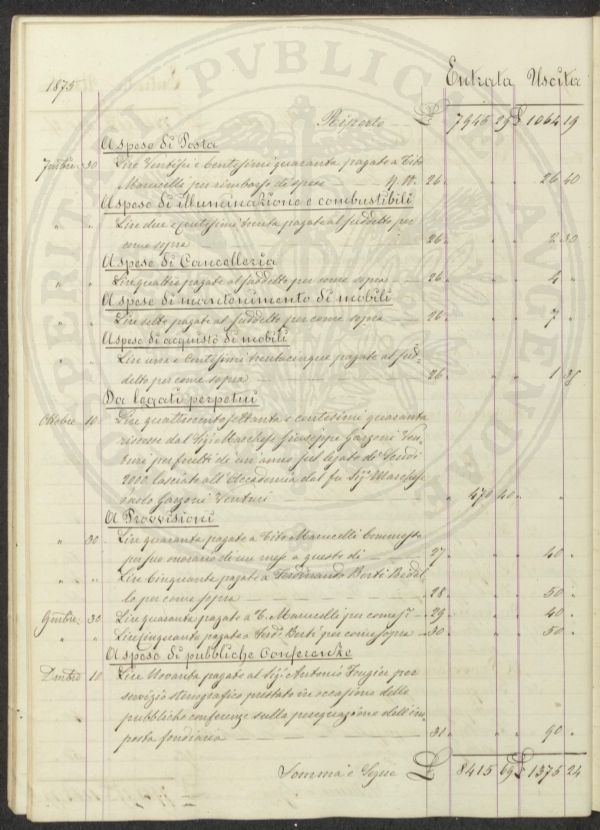 PROSPERITATI PUBLICAE AUGENDAE
1875 Entrata Uscita
Riporto £ 7945 29 £ 1064 19
A Spese di Posta
7mbre 30 Lire Ventisei e Centesimi quaranta pagate a Tito
Marucelli per rimborso di spese N. N. 26 " " " 26 40
A Spese di illuminazione e combustibili
" " Lire due e centesimi trenta pagate al suddetto per
come sopra 26 " " " 2 30
A Spese di Cancelleria
" " Lire quattro pagate al suddetto per come sopra 26 " " " 4 "
A Spese di mantenimento di mobili
" " Lire sette pagate al suddetto per come sopra 26 " " " 7 "
A Spese di acquisto di mobili
" " Lire una e Centesimi trentacinque pagate al sud-
detto per come sopra 26 " " " 1 35
Da legati perpetui
Ottobre 10 Lire quattrocento settanta e centesimi quaranta
riscosse dal Sig. Marchese Giuseppe Garzoni Ven-
turi per frutti di un anno sul legato di Scudi
2000 lasciato all'Accademia dal fu Sig. Marchese
Paolo Garzoni Venturi " 470 40 " "
A Provvisioni
" 30 Lire quaranta pagate a Tito Marucelli Commesso
per suo onorario di un mese a questo dì 27 " " " 40 "
" " Lire Cinquanta pagate a Ferdinando Berti Bidel-
lo per come sopra 28 " " " 50 "
9mbre 30 Lire quaranta pagate a T. Marucelli per come s.a 29 " " " 40 "
" " Lire cinquanta pagate a Ferd. Berti per come sopra 30 " " " 50 "
A Spese di pubbliche Conferenze
Dmbre 10 Lire Novanta pagate al Sig. Antonio per
servizio stenografico prestato in occasione delle
pubbliche conferenze sulla perequazione dell'im-
posta fondiaria 31 " " " 90 "
Somma e Segue £ 8415 69 £ 1375 24